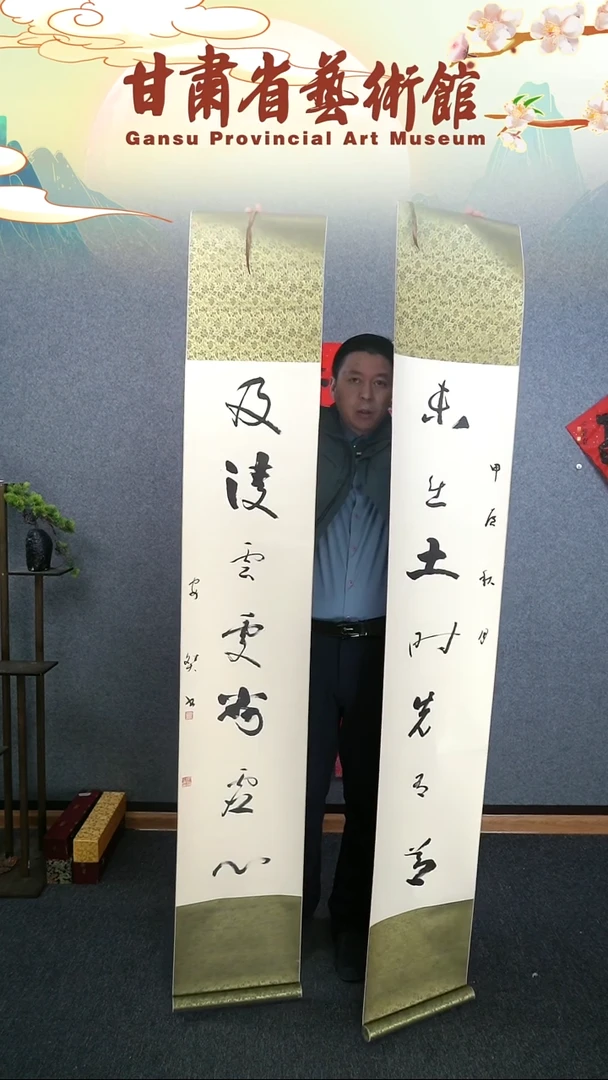 甘肅省藝術館
Gansu Provincial Art Museum
未出土时先有節
甲辰秋月
及淩雲處尚虛心